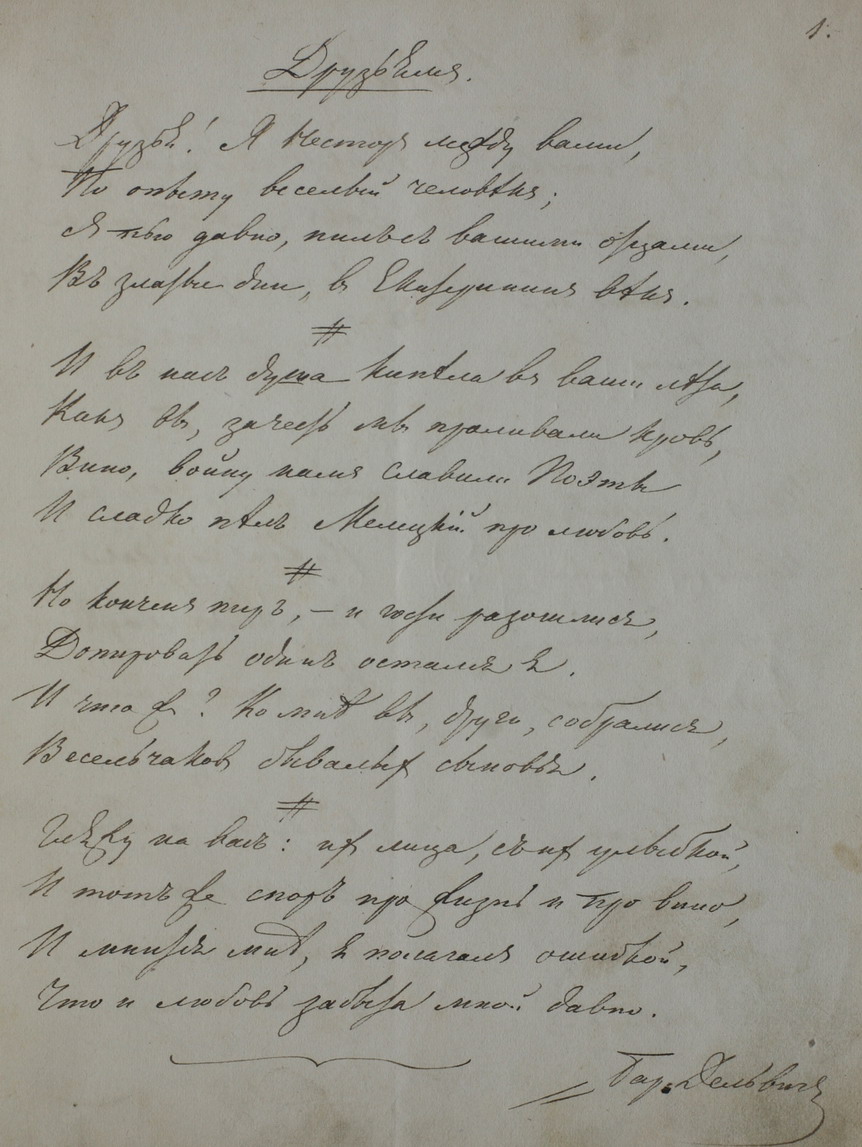 1.
Друзьямъ.
Друзья! Я Несторъ между вами,
По опыту веселый человѣкъ;
Я пью давно, пилъ съ вашими отцами,
Въ златые дни, въ Екатерининъ вѣкъ.
И въ насъ душа кипѣла въ ваши лѣта,
Какъ вы, за честь мы проливали кровь,
Вино, войну намъ славили Поэты
И сладко пѣлъ Мелецкій про любовь.
Но конченъ пиръ, – и гости разошлися,
Допировать одинъ остался я.
И что ж? Ко мнѣ вы, други, собралися,
Весельчаков бывалых сыновья.
Гляжу на васъ: их лица, съ их улыбкой,
И тотъ же споръ про жизнь и про вино,
И мнится мнѣ, я полагалъ ошибкой,
Что и любовь забыта мной давно.
Бар. Дельвигъ